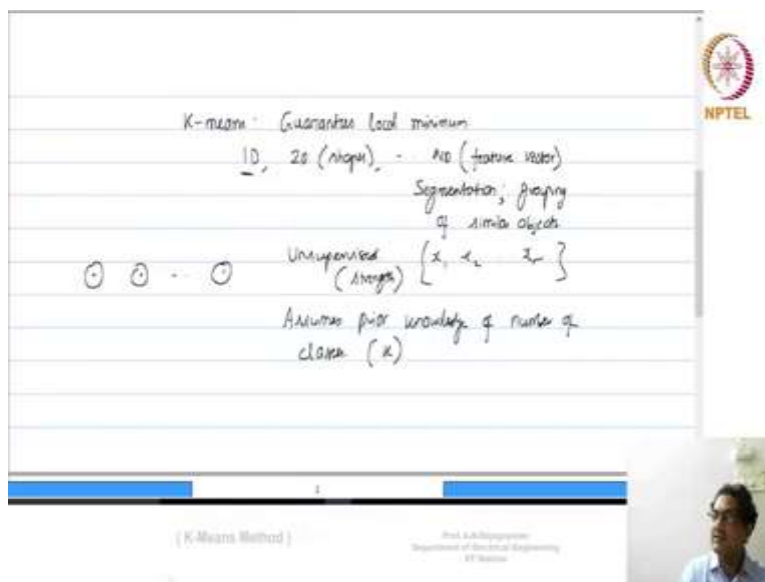 NPTEL
K-means: Guarantees local minimum
1D, 2D (shapes), - ND (feature vector)
Segmentation; grouping
of similar objects
Unsupervised { x1 x2 .. xn }
(strength)
Assumes prior knowledge of number of
classes (K)
1
( K-Means Method )
Department of Electrical Engineering